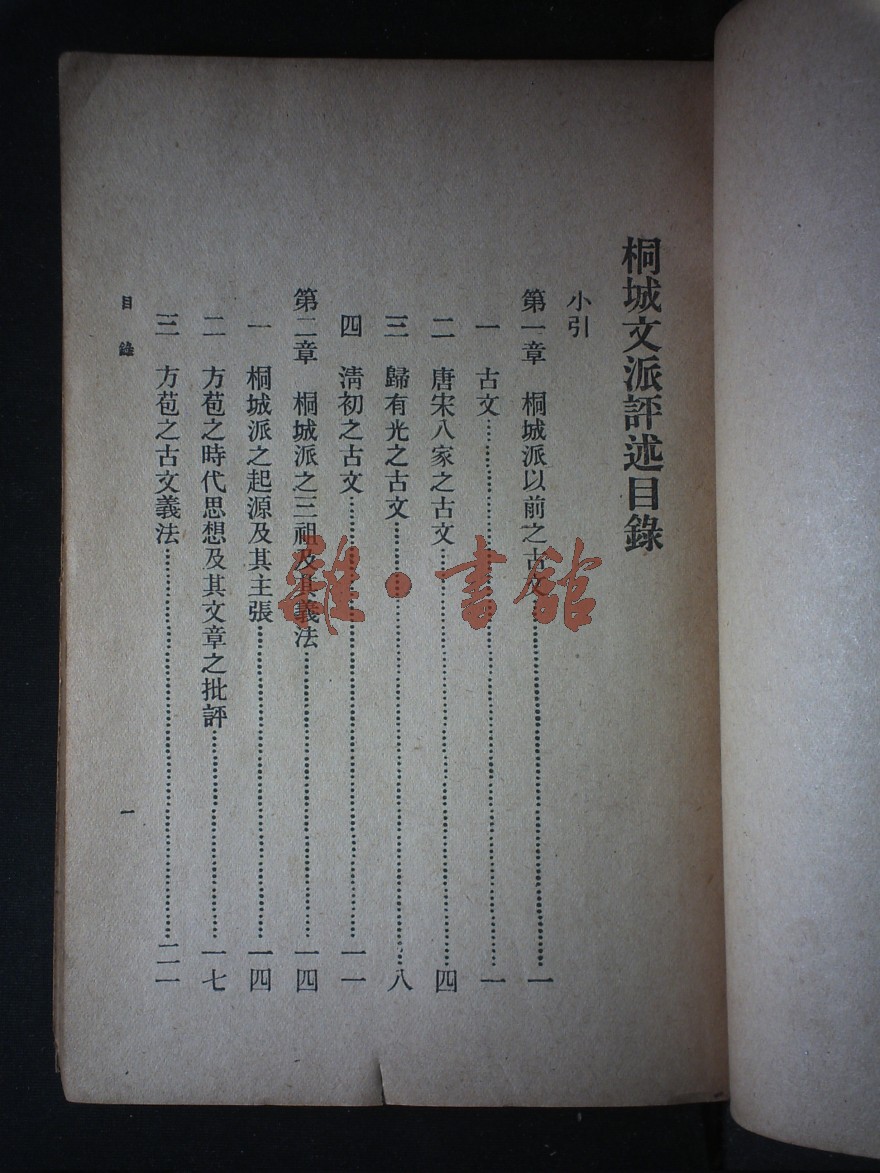 桐城文派評述目錄
小引
第一章　桐城派以前之古文……一
一　古文……一
二　唐宋八家之古文……四
三　歸有光之古文……八
四　淸初之古文……一一
第二章　桐城派之三祖及其義法……一四
一　桐城派之起源及其主張……一四
二　方苞之時代思想及其文章之批評……一七
三　方苞之古文義法……二一
目錄　一
雜·書館